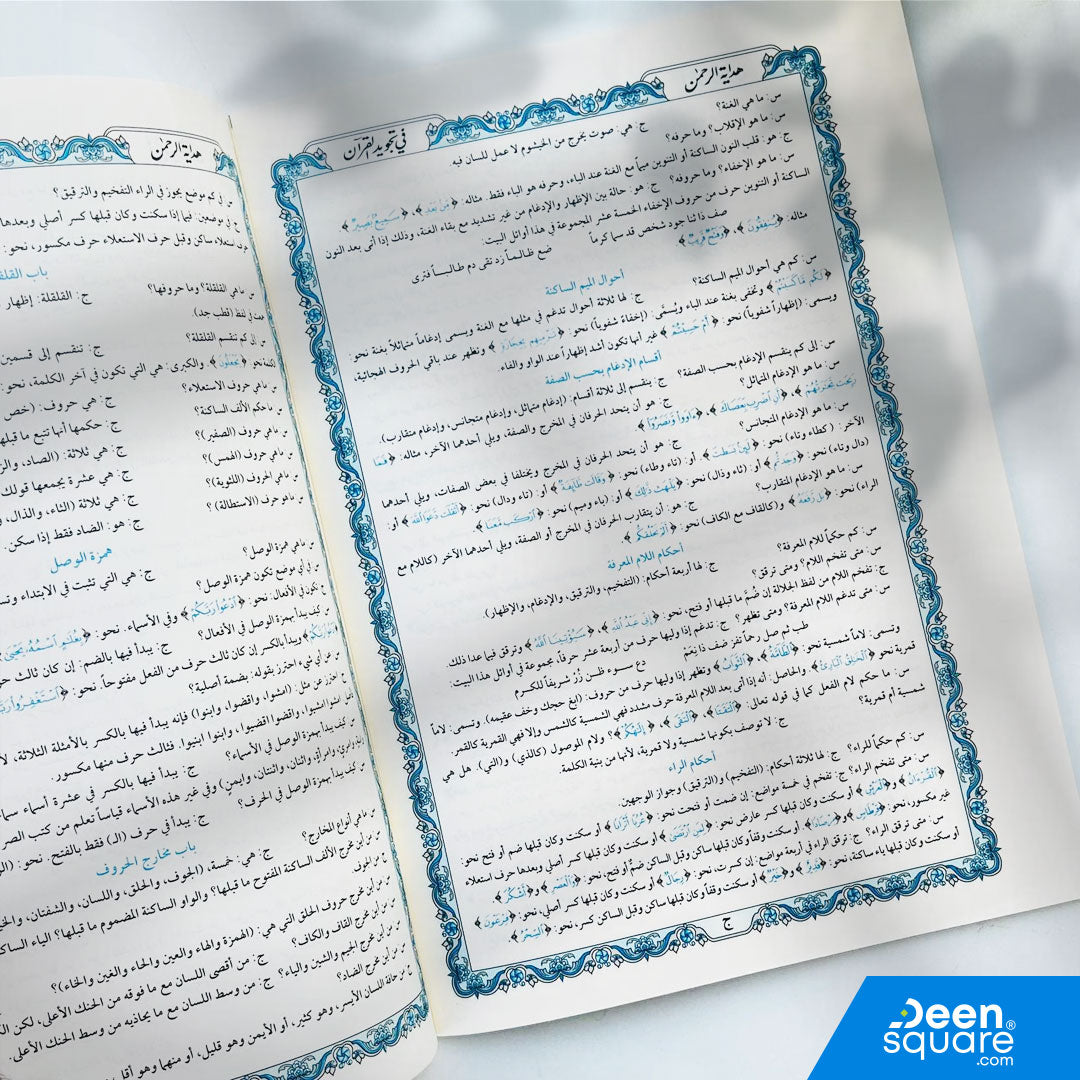 هداية الرحمن
في تجويد القرآن
س: ما هي الغنة؟
ج: هي: صوت يخرج من الخيشوم لا عمل للسان فيه.
س: ما هو الإقلاب؟ وما حرفه؟
ج: هو: قلب النون الساكنة أو التنوين ميماً مع الغنة عند الباء، وحرفه هو الباء فقط. مثاله: ﴿مِنْ بَعْدِ﴾، ﴿سَمِيعٌ بَصِيرٌ﴾.
س: ما هو الإخفاء؟ وما حروفه؟ ج: هو: حالة بين الإظهار والإدغام من غير تشديد مع بقاء الغنة، وذلك إذا أتى بعد النون
الساكنة أو التنوين حرف من حروف الإخفاء الخمسة عشر المجموعة في هذا أوائل البيت:
صف ذا ثنا جود شخص قد سما كرماً ضع ظالماً زد تقى دم طالباً فترى
مثاله: ﴿يُنفِقُونَ﴾، ﴿وَفَتْحٌ قَرِيبٌ﴾
أحوال الميم الساكنة
س: كم هي أحوال الميم الساكنة؟ ج: لها ثلاثة أحوال تدغم في مثلها مع الغنة ويسمى إدغاماً متماثلاً بغنة نحو:
﴿لَكُم مَّا كَسَبْتُمْ﴾ وتخفى بغنة عند الباء ويُسمَّى: (إخفاءً شفوياً) نحو: ﴿تَرْمِيهِم بِحِجَارَةٍ﴾ وتظهر عند باقي الحروف الهجائية،
ويسمى: (إظهاراً شفوياً) نحو: ﴿أَمْ حَسِبْتُمْ﴾ غير أنها تكون أشد إظهاراً عند الواو والفاء.
أقسام الإدغام بحسب الصفة
س: إلى كم ينقسم الإدغام بحسب الصفة؟ ج: ينقسم إلى ثلاثة أقسام: (إدغام متماثل، وإدغام متجانس، وإدغام متقارب).
س: ما هو الإدغام المتماثل؟ ج: هو أن يتحد الحرفان في المخرج والصفة، ويلي أحدهما الآخر، مثاله: ﴿فَمَا
رَبِحَت تِّجَارَتُهُمْ﴾، ﴿أَنِ اضْرِب بِّعَصَاكَ﴾، ﴿ءَاوَوا وَّنَصَرُوا﴾
س: ما هو الإدغام المتجانس؟ ج: هو أن يتحد الحرفان في المخرج ويختلفا في بعض الصفات، ويلي أحدهما
الآخر: (كطاء وتاء) نحو: ﴿لَئِن بَسَطتَ﴾. أو: (تاء وطاء) نحو: ﴿وَقَالَت طَّائِفَةٌ﴾ أو: (تاء ودال) نحو: ﴿أَثْقَلَت دَّعَوَا اللَّهَ﴾ أو:
(دال وتاء) نحو: ﴿وَجَدتُّم﴾ أو: (ثاء وذال) نحو: ﴿يَلْهَث ذَّلِكَ﴾ أو: (باء وميم) نحو: ﴿ارْكَب مَّعَنَا﴾.
س: ما هو الإدغام المتقارب؟ ج: هو: أن يتقارب الحرفان في المخرج أو الصفة، ويلي أحدهما الآخر (كاللام مع
الراء) نحو: ﴿بَل رَّفَعَهُ﴾ و(كالقاف مع الكاف) نحو: ﴿أَلَمْ نَخْلُقكُّم﴾.
أحكام اللام المعرفة
س: كم حكماً للام المعرفة؟ ج: لها أربعة أحكام: (التفخيم، والترقيق، والإدغام، والإظهار).
س: متى تفخم اللام؟ ومتى ترقق؟
ج: تفخم اللام من لفظ الجلالة إن ضُمَّ ما قبلها أو فتح، نحو: ﴿إِنِّي عَبْدُ اللَّهِ﴾، ﴿سَيُؤْتِينَا اللَّهُ﴾ وترقق فيما عدا ذلك.
س: متى تدغم اللام المعرفة؟ ومتى تظهر؟ ج: تدغم إذا وليها حرف من أربعة عشر حرفاً، مجموعة في أوائل هذا البيت:
طب ثم صل رحماً تفز ضف ذا نِعَم دع سوء ظن زُرْ شريفاً للكرم
وتسمى: لاماً شمسية نحو: ﴿الطَّاقَةُ﴾، ﴿التَّوَّابُ﴾ وتظهر إذا وليها حرف من حروف: (ابغ حجك وخف عقيمه). وتسمى: لاماً
قمرية نحو ﴿الْخَالِقُ الْبَارِئُ﴾. والحاصل: أنه إذا أتى بعد اللام المعرفة حرف مشدد فهي الشمسية كالشمس وإلا فهي القمرية كالقمر.
س: ما حكم لام الفعل كما في قوله تعالى: ﴿الْتَقَتَا﴾، ﴿الْتَقَى﴾، ﴿أَلْهَاكُمُ﴾؟ ولام الموصول (كالذي) و(التي). هل هي
شمسية أم قمرية؟ ج: لا توصف بكونها شمسية ولا قمرية، لأنها من بنية الكلمة.
أحكام الراء
س: كم حكماً للراء؟ ج: لها ثلاثة أحكام: (التفخيم) و(الترقيق) وجواز الوجهين.
س: متى تفخم الراء؟ ج: تفخم في خمسة مواضع: إن ضمت أو فتحت نحو: ﴿عُرُبًا أَتْرَابًا﴾ أو سكنت وكان قبلها ضم أو فتح نحو:
﴿الْقُرْءَانُ﴾ و﴿الْعَرْشِ﴾ أو سكنت وكان قبلها كسر عارض نحو: ﴿لِمَنِ ارْتَضَى﴾ أو سكنت وكان قبلها كسر أصلي وبعدها حرف استعلاء
غير مكسور، نحو: ﴿قِرْطَاسٍ﴾ و﴿إِرْصَادًا﴾. أو سكنت وقفاً وكان قبلها ساكن وقبل الساكن ضمٌّ أو فتح، نحو: ﴿الْعَصْرِ﴾ و﴿أَشْكُرُ﴾.
س: متى ترقق الراء؟ ج: ترقق الراء في أربعة مواضع: إن كسرت، نحو: ﴿رِجَالٌ﴾ أو سكنت وكان قبلها كسر أصلي، نحو: ﴿فِرْعَوْنَ﴾
أو سكنت وكان قبلها ياء ساكنة، نحو: ﴿قَدِيرٌ﴾ و﴿خَيْرٌ﴾ أو سكنت وقفاً وكان قبلها ساكن وقبل الساكن كسر، نحو: ﴿السِّحْرُ﴾.
ج
هداية الرحمن
س في كم موضع يجوز في الراء التفخيم والترقيق؟
ج في موضعين: فيما إذا سكنت وكان قبلها كسر أصلي وبعدها
حرف استعلاء ساكن وقبل حرف الاستعلاء حرف مكسور، نحو:
باب القلقـ
س ما هي القلقلة؟ وما حروفها؟ ج: القلقلة: إظهار
جمعت في لفظ (قطب جد).
س إلى كم تنقسم القلقلة؟ ج: تنقسم إلى قسمين
﴿يَجْعَلُونَ﴾. والكبرى: هي التي تكون في آخر الكلمة، نحو:
س ما هي حروف الاستعلاء؟ ج: هي حروف: (خص
س ما حكم الألف الساكنة؟ ج: حكمها أنها تتبع ما قبلها
س ما هي حروف (الصفير)؟ ج: هي ثلاثة: (الصاد، والز
س ما هي حروف (الهمس)؟ ج: هي عشرة يجمعها قولك
س ما هي الحروف (اللثوية)؟ ج: هي ثلاثة (الثاء، والذال، و
س ما هو حرف (الاستطالة)؟ ج: هو: الضاد فقط إذا سكن.
همزة الوصل
س ما هي همزة الوصل؟ ج: هي التي تثبت في الابتداء وتسـ
س في أي موضع تكون همزة الوصل؟
ج تكون في الأفعال: نحو: ﴿ادْعُوا رَبَّكُمْ﴾ وفي الأسماء. نحو: ﴿بِغُلَامٍ اسْمُهُ يَحْيَى﴾
س كيف يبدأ بهمزة الوصل في الأفعال؟ ج: يبدأ فيها بالضم: إن كان ثالث حر
ويبدأ بالكسر إن كان ثالث حرف من الفعل مفتوحاً. نحو: ﴿اسْتَغْفِرُوا رَبَّـ
س عن أي شيء احترز بقوله: بضمة أصلية؟
ج احترز عن مثل: (امشوا، واقضوا، وابنوا) فإنه يبدأ فيها بالكسر بالأمثلة الثلاثة، لأ
امشيوا، واقضوا اقضيوا، وابنوا ابنيوا. فثالث حرف منها مكسور.
س كيف يبدأ بهمزة الوصل في الأسماء؟ ج: يبدأ فيها بالكسر في عشرة أسماء سماعـ
وامرئ، وامرأةٍ، واثنان، واثنتان، وايمنٍ) وفي غير هذه الأسماء قياساً تعلم من كتب الصر
س كيف يبدأ بهمزة الوصل في الحرف؟ ج: يبدأ في حرف (الـ) فقط بالفتح. نحو: (الـ
باب مخارج الحروف
س ما هي أنواع المخارج؟ ج: هي: خمسة، (الجوف، والحلق، واللسان، والشفتان، والخيـ
س من أين مخرج الألف الساكنة المفتوح ما قبلها؟ والواو الساكنة المضموم ما قبلها؟ الياء الساكنـ
ج من الجوف.
س من أين مخرج حروف الحلق التي هي: (الهمزة والهاء والعين والحاء والغين والخاء)؟
س من أين مخرج القاف والكاف؟ ج: من أقصى اللسان مع ما فوقه من الحنك الأعلى، لكن الـ
س من أين مخرج الجيم والشين والياء؟ ج: من وسط اللسان مع ما يحاذيه من وسط الحنك الأعلى.
س من أين مخرج الضاد؟
ج من حافة اللسان الأيسر، وهو كثير، أو الأيمن وهو قليل، أو منهما وهو أقل
Deen®
square
.com